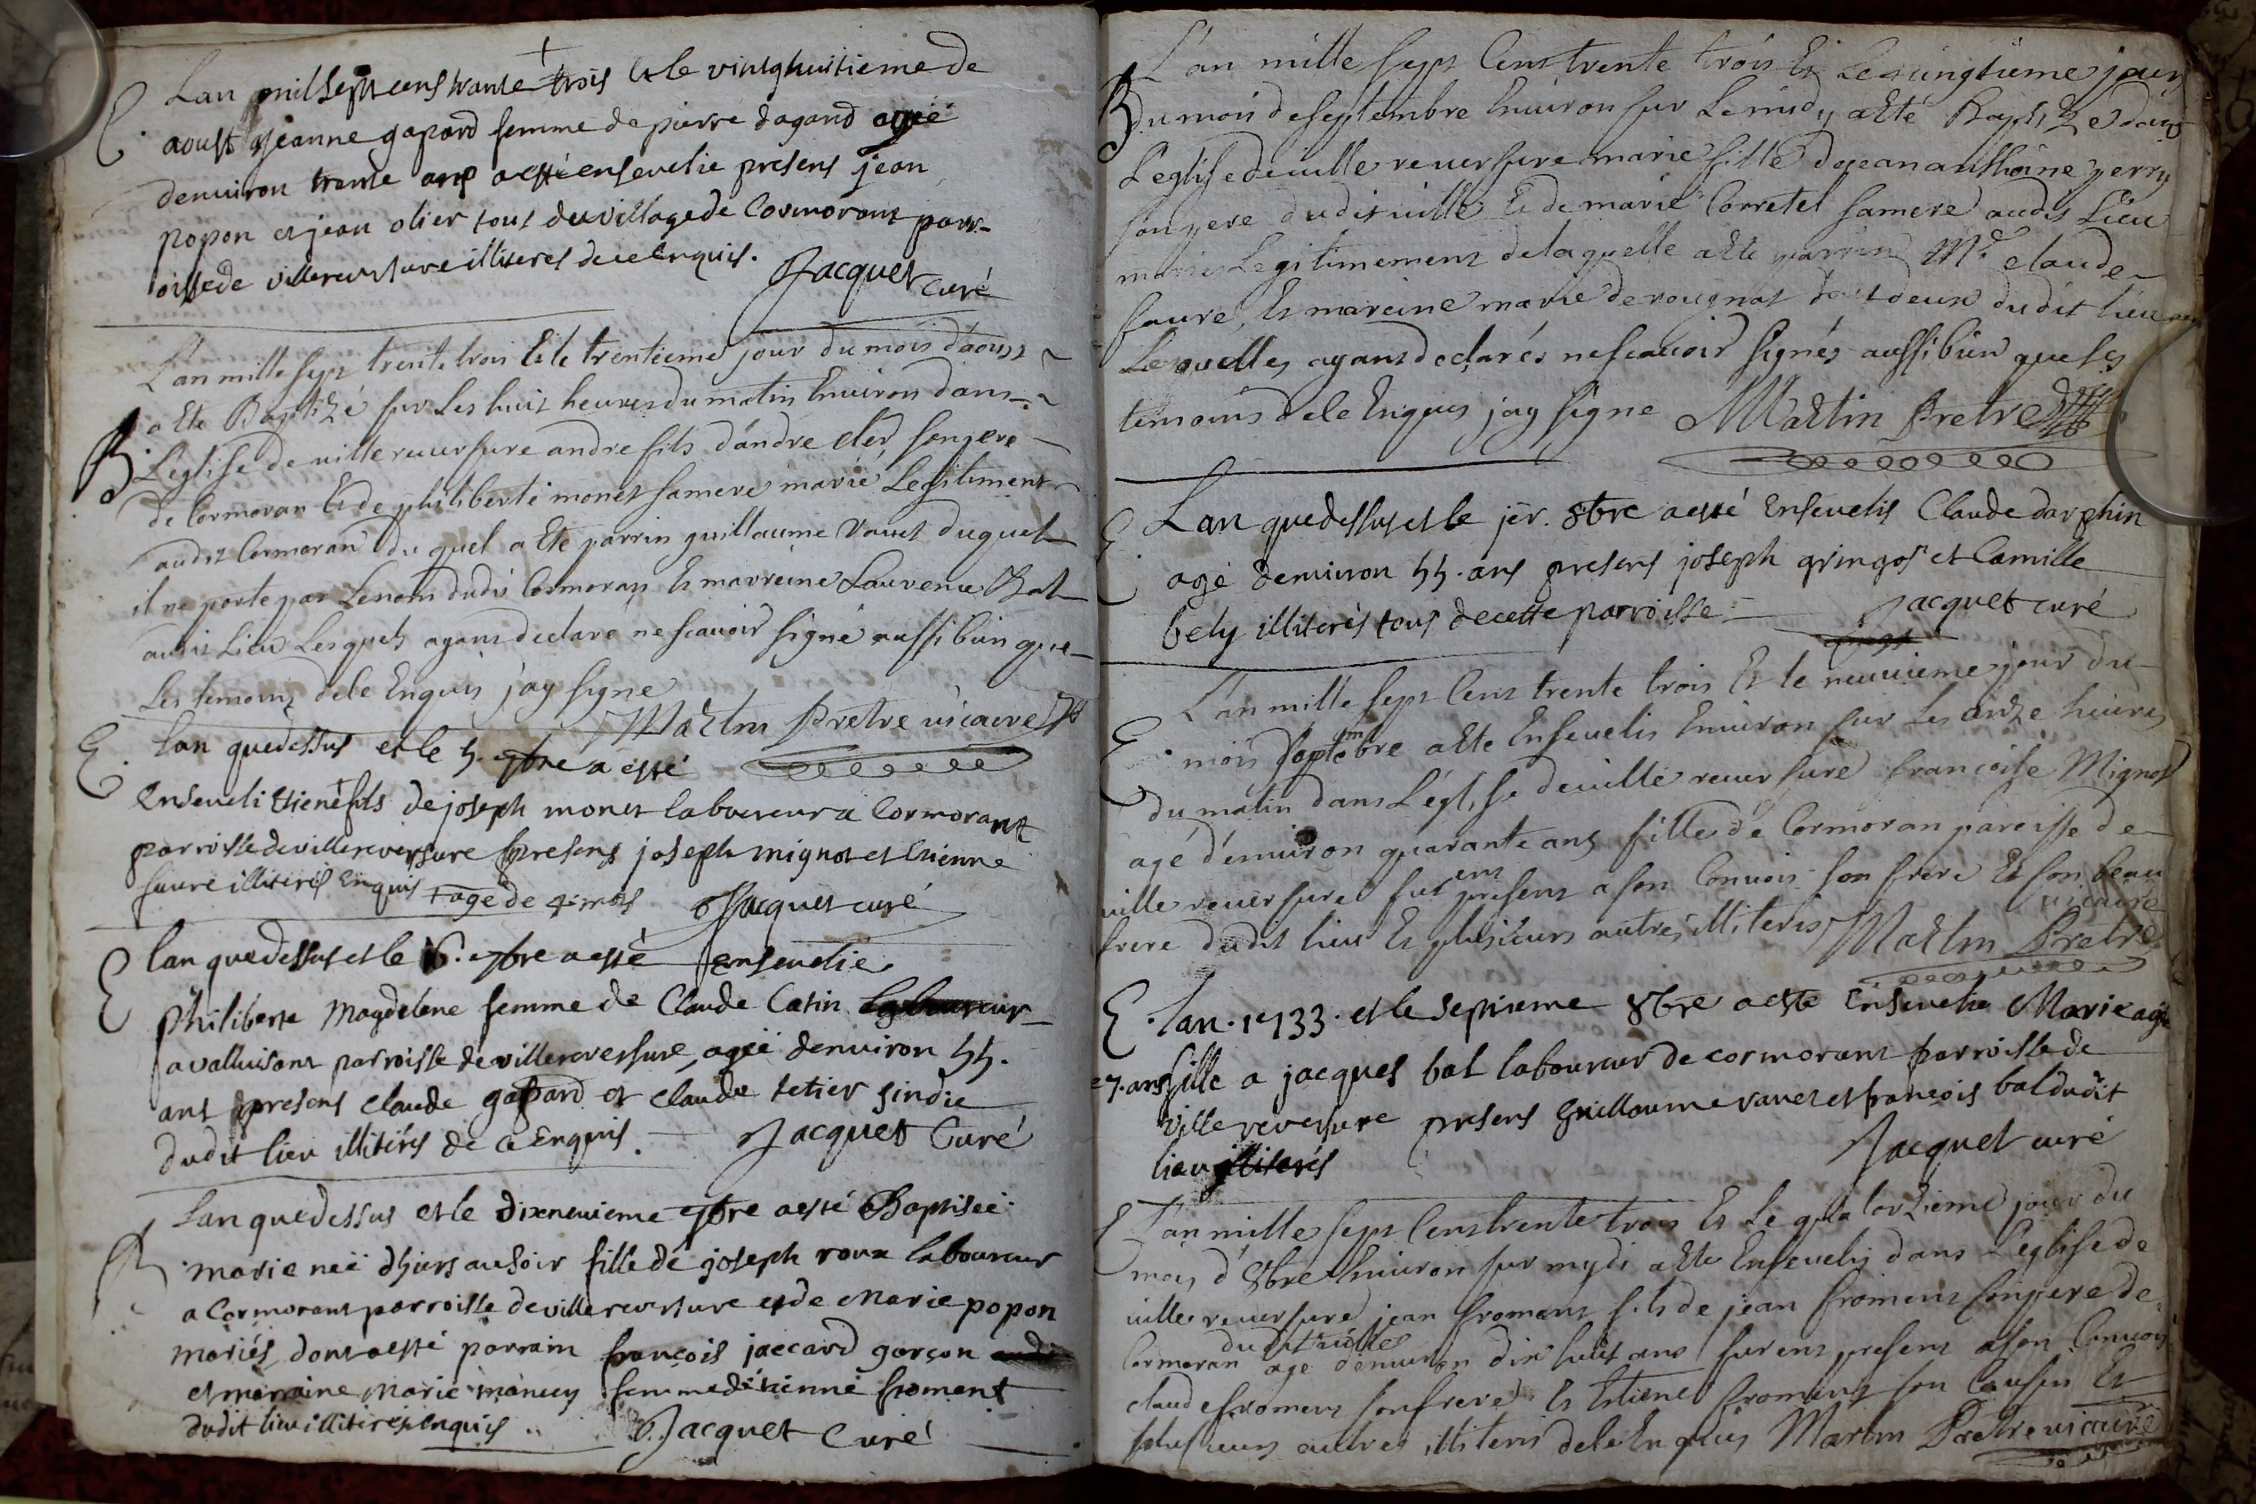 E.
Lan mil sept cens trante trois et le vintghuitieme de
aoust jeanne gapard femme de pierre dagand agéé
denviron trante ans a esté ensevelie presens jean
popon et jean olier tout du village de Cormorant parr-
oisse de villereversure illiterés de ce enquis.
Jacquet curé
L'an mille sept trente trois Et le trentieme jour du mois d'aoust
B.
a Ete Baptizé sur Les huit heures du matin Environ dans
L'eglise de villereversure andre fils d'andre son pere
de Cormoran Et de philiberte monet sa mere marié Legitiment
audit Cormoran du quel a Ete parrin guillaume vanet duquel
il ne porte pas Le nom dudit Cormoran Et marreine Laurence Bal
audit Lieu Lesquels ayans declare ne scavoir signé aussi bien que
Les temoins de le Enquis j'ay signe
Martin Pretre vicaire
E.
lan que dessus et le 5. 7bre a esté
enseveli Etiene fils de joseph monet laboureur a Cormorant
parroisse de villereversure presens joseph mignot et Etienne
favre illiterés enquis + agé de 4. mois
Jacquet curé
E
lan que dessus et le 6. 7bre a esté ensevelie
philiberte Magdelene femme de Claude Catin
a valluisant parroisse de villereversure, agéé denviron 55.
ans presens claude gapard et claude tetier sindic
dudit lieu illitérés de ce Enquis.
Jacquet Curé
B
Lan que dessus et le dixneuvieme 7bre a esté Baptiseé
marie neé dhiers au soir fille de joseph roux laboureur
a Cormorant parroisse de villereversure et de Marie popon
mariés, dont a esté parrain françois jaccard garçon
et marraine Marie mancey femme d'étienne froment
dudit lieu illiterés enquis
Jacquet Curé
L'an mille sept Cens trente trois Et Le vingtieme jour
B
Du mois de septembre Environ sur Le midy a Eté Baptizé dans
L'eglise de ville reversure marie fille de jean anthoine perry
son pere dudit ville Et de marie Corretel sa mere audit Lieu
mariés Legitimement de laquelle a Ete parrin Mr. claude
favre, Et mareine marie derougnat tout deux dudit lieu
Lesquelles ayans declarés ne scavoir signés aussi bien que les
temoins de le Enquis j'ay signe Martin Pretre
E.
Lan que dessus et le jer. 8bre a esté Ensevelis Claude darphin
agé denviron 55. ans presens joseph gringos et Camille
bely illiterés tous de cette parroisse
Jacquet curé
L'an mille sept Cens trente trois Et le neuvieme jour du
E.
mois d'octobre a Ete Ensevelis Environ sur Les onze heures
du matin dans L'eglise de ville reversure francoise Mignot
agé d'environ quarante ans fille de Cormoran paroisse de
ville reversure furent presens a son Convois son frere Et son beau
frere dudit lieu Et plusieurs autres illiteris Martin Pretre
vicaire
E.
lan. 1733. et le septieme 8bre a esté Ensevelie Marie agée
27. ans fille a jacques bal laboureur de cormorant parroisse de
ville reversure presens guillaume vanet et françois bal dudit
lieu illiterés
Jacquet curé
E
L'an mille sept Cens trente trois Et Le quatorzieme jour du
mois d'8bre Environ sur mydi a Ete Ensevelis dans L'eglise de
ville reversure jean froment fils de jean froment son pere de
dudit ville
Cormoran age d'environ dix huit ans furent presens a son Convois
claude froment son frere Et Etiene froment son Cousin Et
plusieurs autres illiteris de le Enquis Martin Pretre vicaire